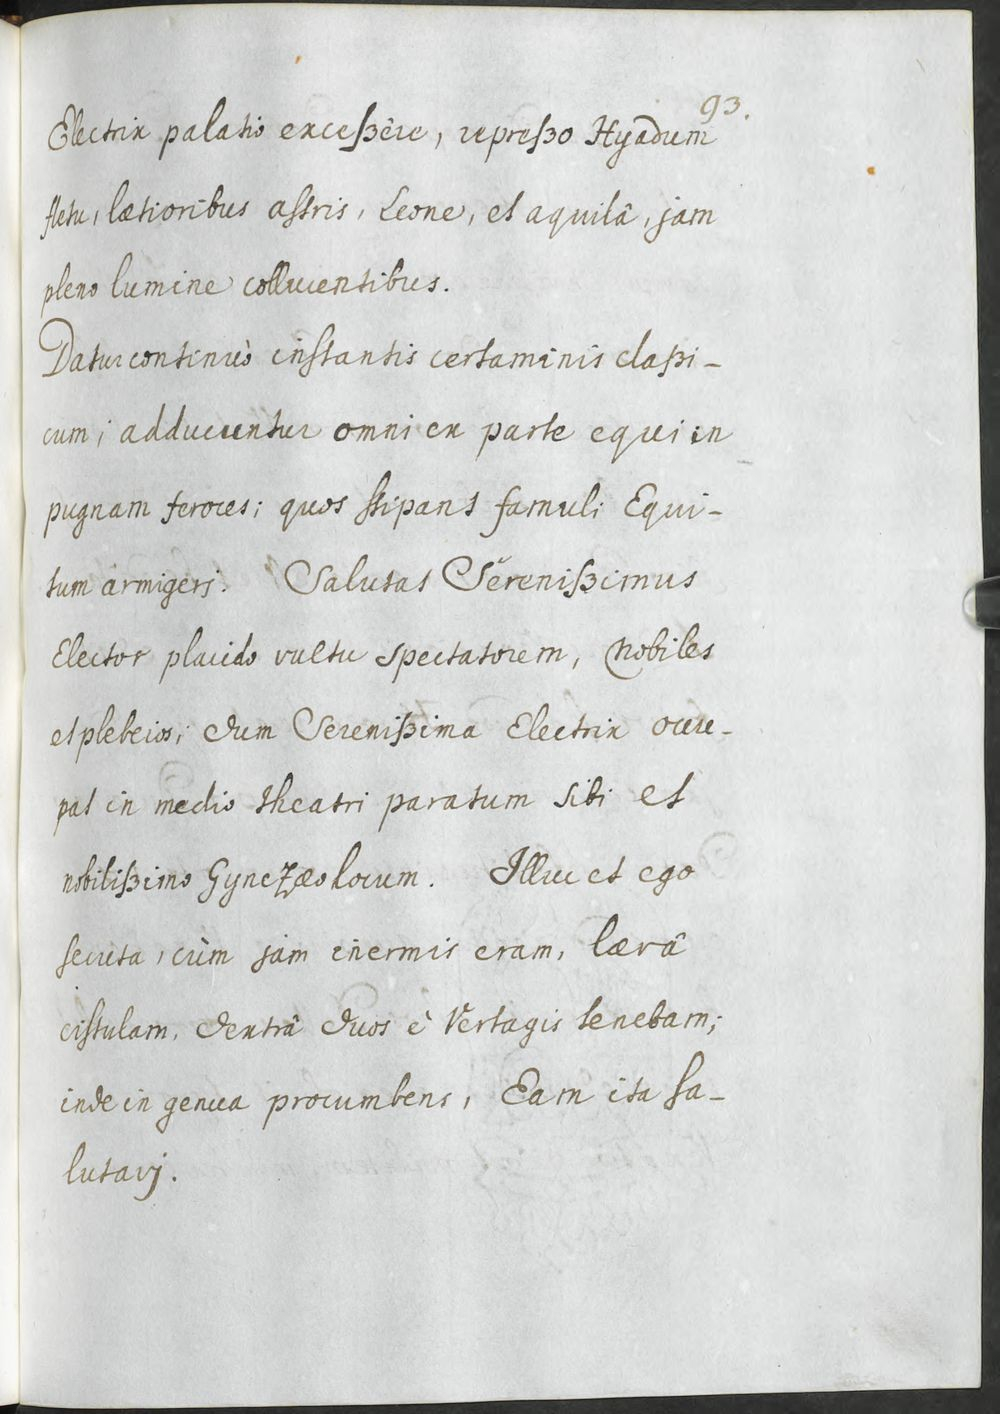 93.
Electrix palatio exceßêre, represso Hyadum
fletu, lætioribus astris, Leone, et aquilâ, jam
pleno lumine collucentibus.
Datur continuò instantis certaminis claßi-
cum; adducuntur omni ex parte equi in
pugnam feroces; quos stipant famuli Equi-
tum armigeri. Salutat Serenißimus
Elector placido vultu spectatorem, Nobiles
et plebeios; dum Serenißima Electrix occu-
pat in medio theatri paratum sibi et
nobilißimo Gynezæo locum. Illuc et ego
secuta, cùm jam inermis eram, lævâ
cistulam, dextrâ duos è Vertagis tenebam;
inde in genua procumbens, Eam ita sa-
lutavj.